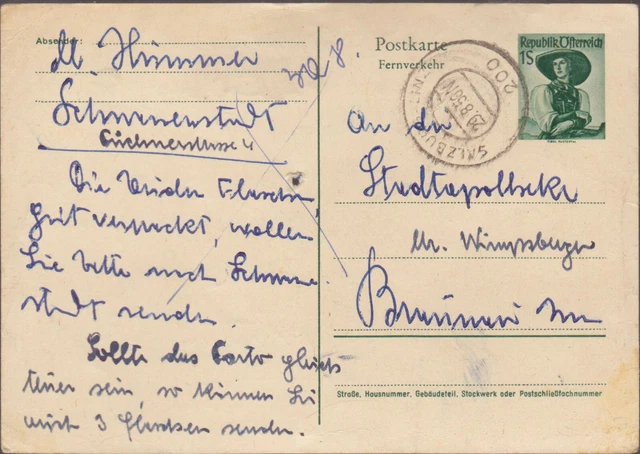 Absender: M. Hümmer
Schwanenstadt
4
Die beiden Flaschen,
gut verpackt, wollen
Sie bitte nach Schwanen-
stadt senden.
Sollte das Porto gleich
teuer sein, so können Sie
mir 3 Flaschen senden.
Postkarte
Fernverkehr
Republik Österreich
1S
SALZBURG
200
An die
Stadtapotheke
Mr. Wimpsberger
Braunau Inn
Straße, Hausnummer, Gebäudeteil, Stockwerk oder Postschließfachnummer